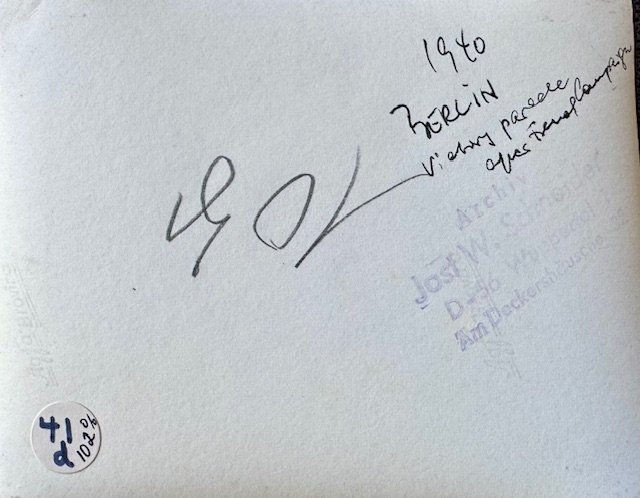 1940
BERLIN
Victory parade
after French Campaign
Archiv
Jost W. Schneider
D-56 Wuppertal 1
Am Deckershäuschen
41
d
102%